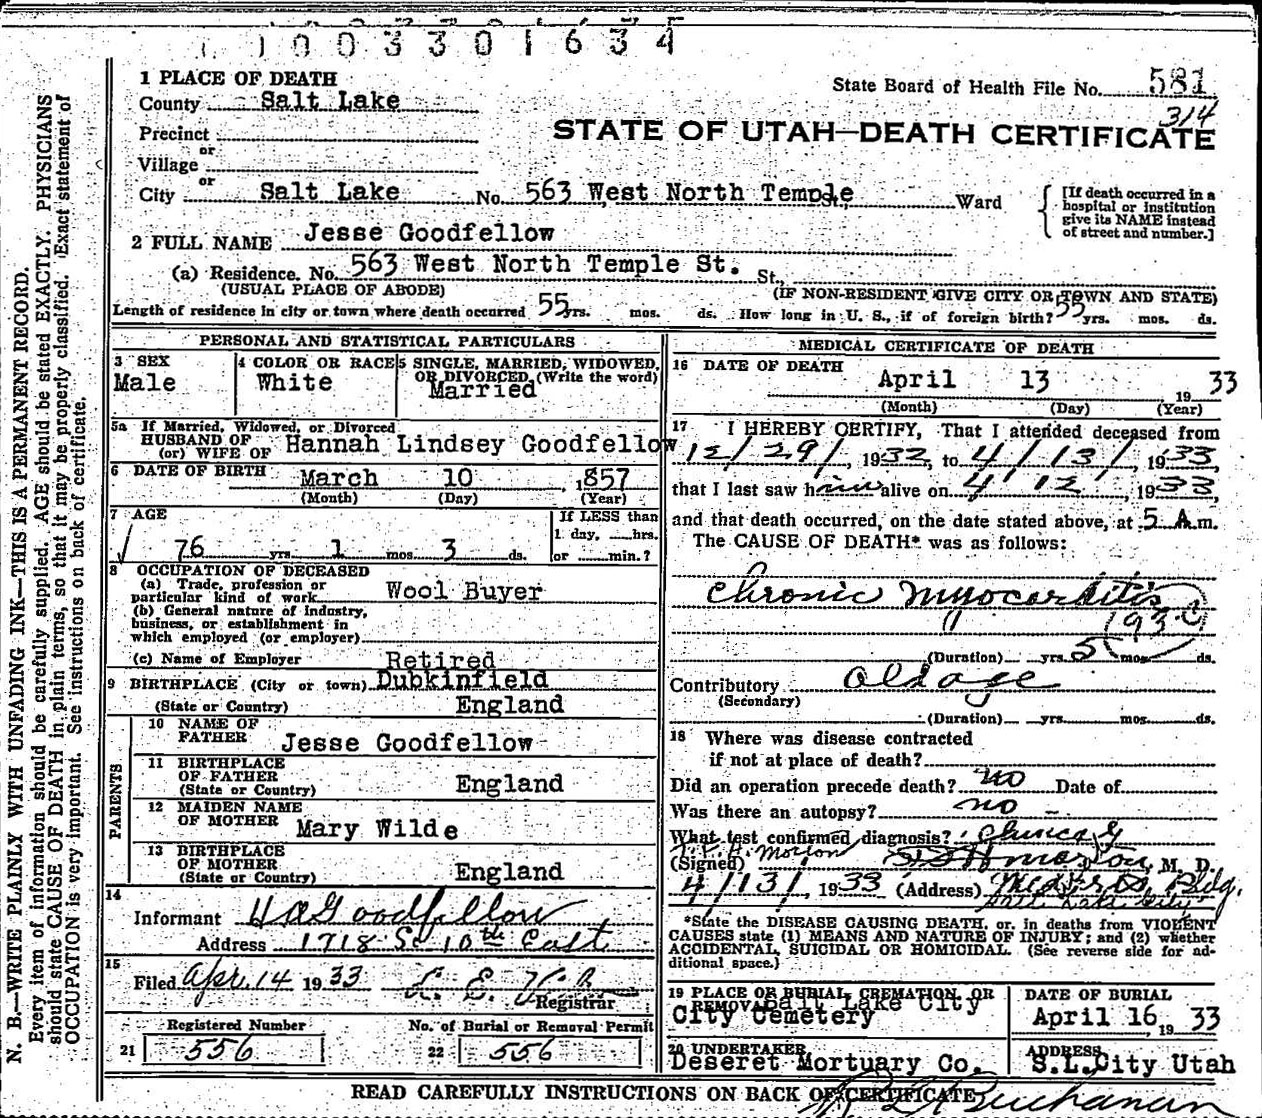 1003301634
1 PLACE OF DEATH
State Board of Health File No. 581
County Salt Lake
314
STATE OF UTAH—DEATH CERTIFICATE
Precinct
or
Village
or
City Salt Lake No. 563 West North Temple Ward
[If death occurred in a hospital or institution give its NAME instead of street and number.]
2 FULL NAME Jesse Goodfellow
(a) Residence. No. 563 West North Temple St. St.,
(USUAL PLACE OF ABODE) (IF NON-RESIDENT GIVE CITY OR TOWN AND STATE)
Length of residence in city or town where death occurred 55 yrs. mos. ds. How long in U. S., if of foreign birth? 55 yrs. mos. ds.
PERSONAL AND STATISTICAL PARTICULARS
3 SEX
Male
4 COLOR OR RACE
White
5 SINGLE, MARRIED, WIDOWED,
OR DIVORCED (Write the word)
Married
5a If Married, Widowed, or Divorced
HUSBAND OF
(or) WIFE OF Hannah Lindsey Goodfellow
6 DATE OF BIRTH March 10 1857
(Month) (Day) (Year)
7 AGE
76 yrs. 1 mos. 3 ds.
If LESS than
1 day, hrs.
or min.?
8 OCCUPATION OF DECEASED
(a) Trade, profession or
particular kind of work Wool Buyer
(b) General nature of industry,
business, or establishment in
which employed (or employer)
(c) Name of Employer Retired
9 BIRTHPLACE (City or town) Dubkinfield
(State or Country) England
PARENTS
10 NAME OF
FATHER Jesse Goodfellow
11 BIRTHPLACE
OF FATHER
(State or Country) England
12 MAIDEN NAME
OF MOTHER Mary Wilde
13 BIRTHPLACE
OF MOTHER
(State or Country) England
14
Informant H A Goodfellow
Address 1718 So 10th East
15
Filed Apr. 14 1933
Registrar
Registered Number
21 556
No. of Burial or Removal Permit
22 556
MEDICAL CERTIFICATE OF DEATH
16 DATE OF DEATH
April 13 1933
(Month) (Day) (Year)
17 I HEREBY CERTIFY, That I attended deceased from
12/29/, 1932, to 4/13/, 1933,
that I last saw him alive on 4 12, 1933,
and that death occurred, on the date stated above, at 5 A.m.
The CAUSE OF DEATH* was as follows:
Chronic Myocarditis
(Duration) yrs. 5 mos. ds.
Contributory Old age
(Secondary)
(Duration) yrs. mos. ds.
18 Where was disease contracted
if not at place of death?
Did an operation precede death? no Date of
Was there an autopsy? no
What test confirmed diagnosis?
(Signed) M. D.
4/13/, 1933 (Address) Bldg.
Salt Lake City
*State the DISEASE CAUSING DEATH, or, in deaths from VIOLENT
CAUSES state (1) MEANS AND NATURE OF INJURY; and (2) whether
ACCIDENTAL, SUICIDAL OR HOMICIDAL. (See reverse side for ad-
ditional space.)
19 PLACE OF BURIAL, CREMATION, OR
REMOVAL Salt Lake City
City Cemetery
DATE OF BURIAL
April 16, 1933
20 UNDERTAKER
Deseret Mortuary Co.
ADDRESS
S.L.City Utah
READ CAREFULLY INSTRUCTIONS ON BACK OF CERTIFICATE
Buchanan
N. B.—WRITE PLAINLY WITH UNFADING INK—THIS IS A PERMANENT RECORD.
Every item of information should be carefully supplied. AGE should be stated EXACTLY. PHYSICIANS
should state CAUSE OF DEATH in plain terms, so that it may be properly classified. Exact statement of
OCCUPATION is very important. See instructions on back of certificate.